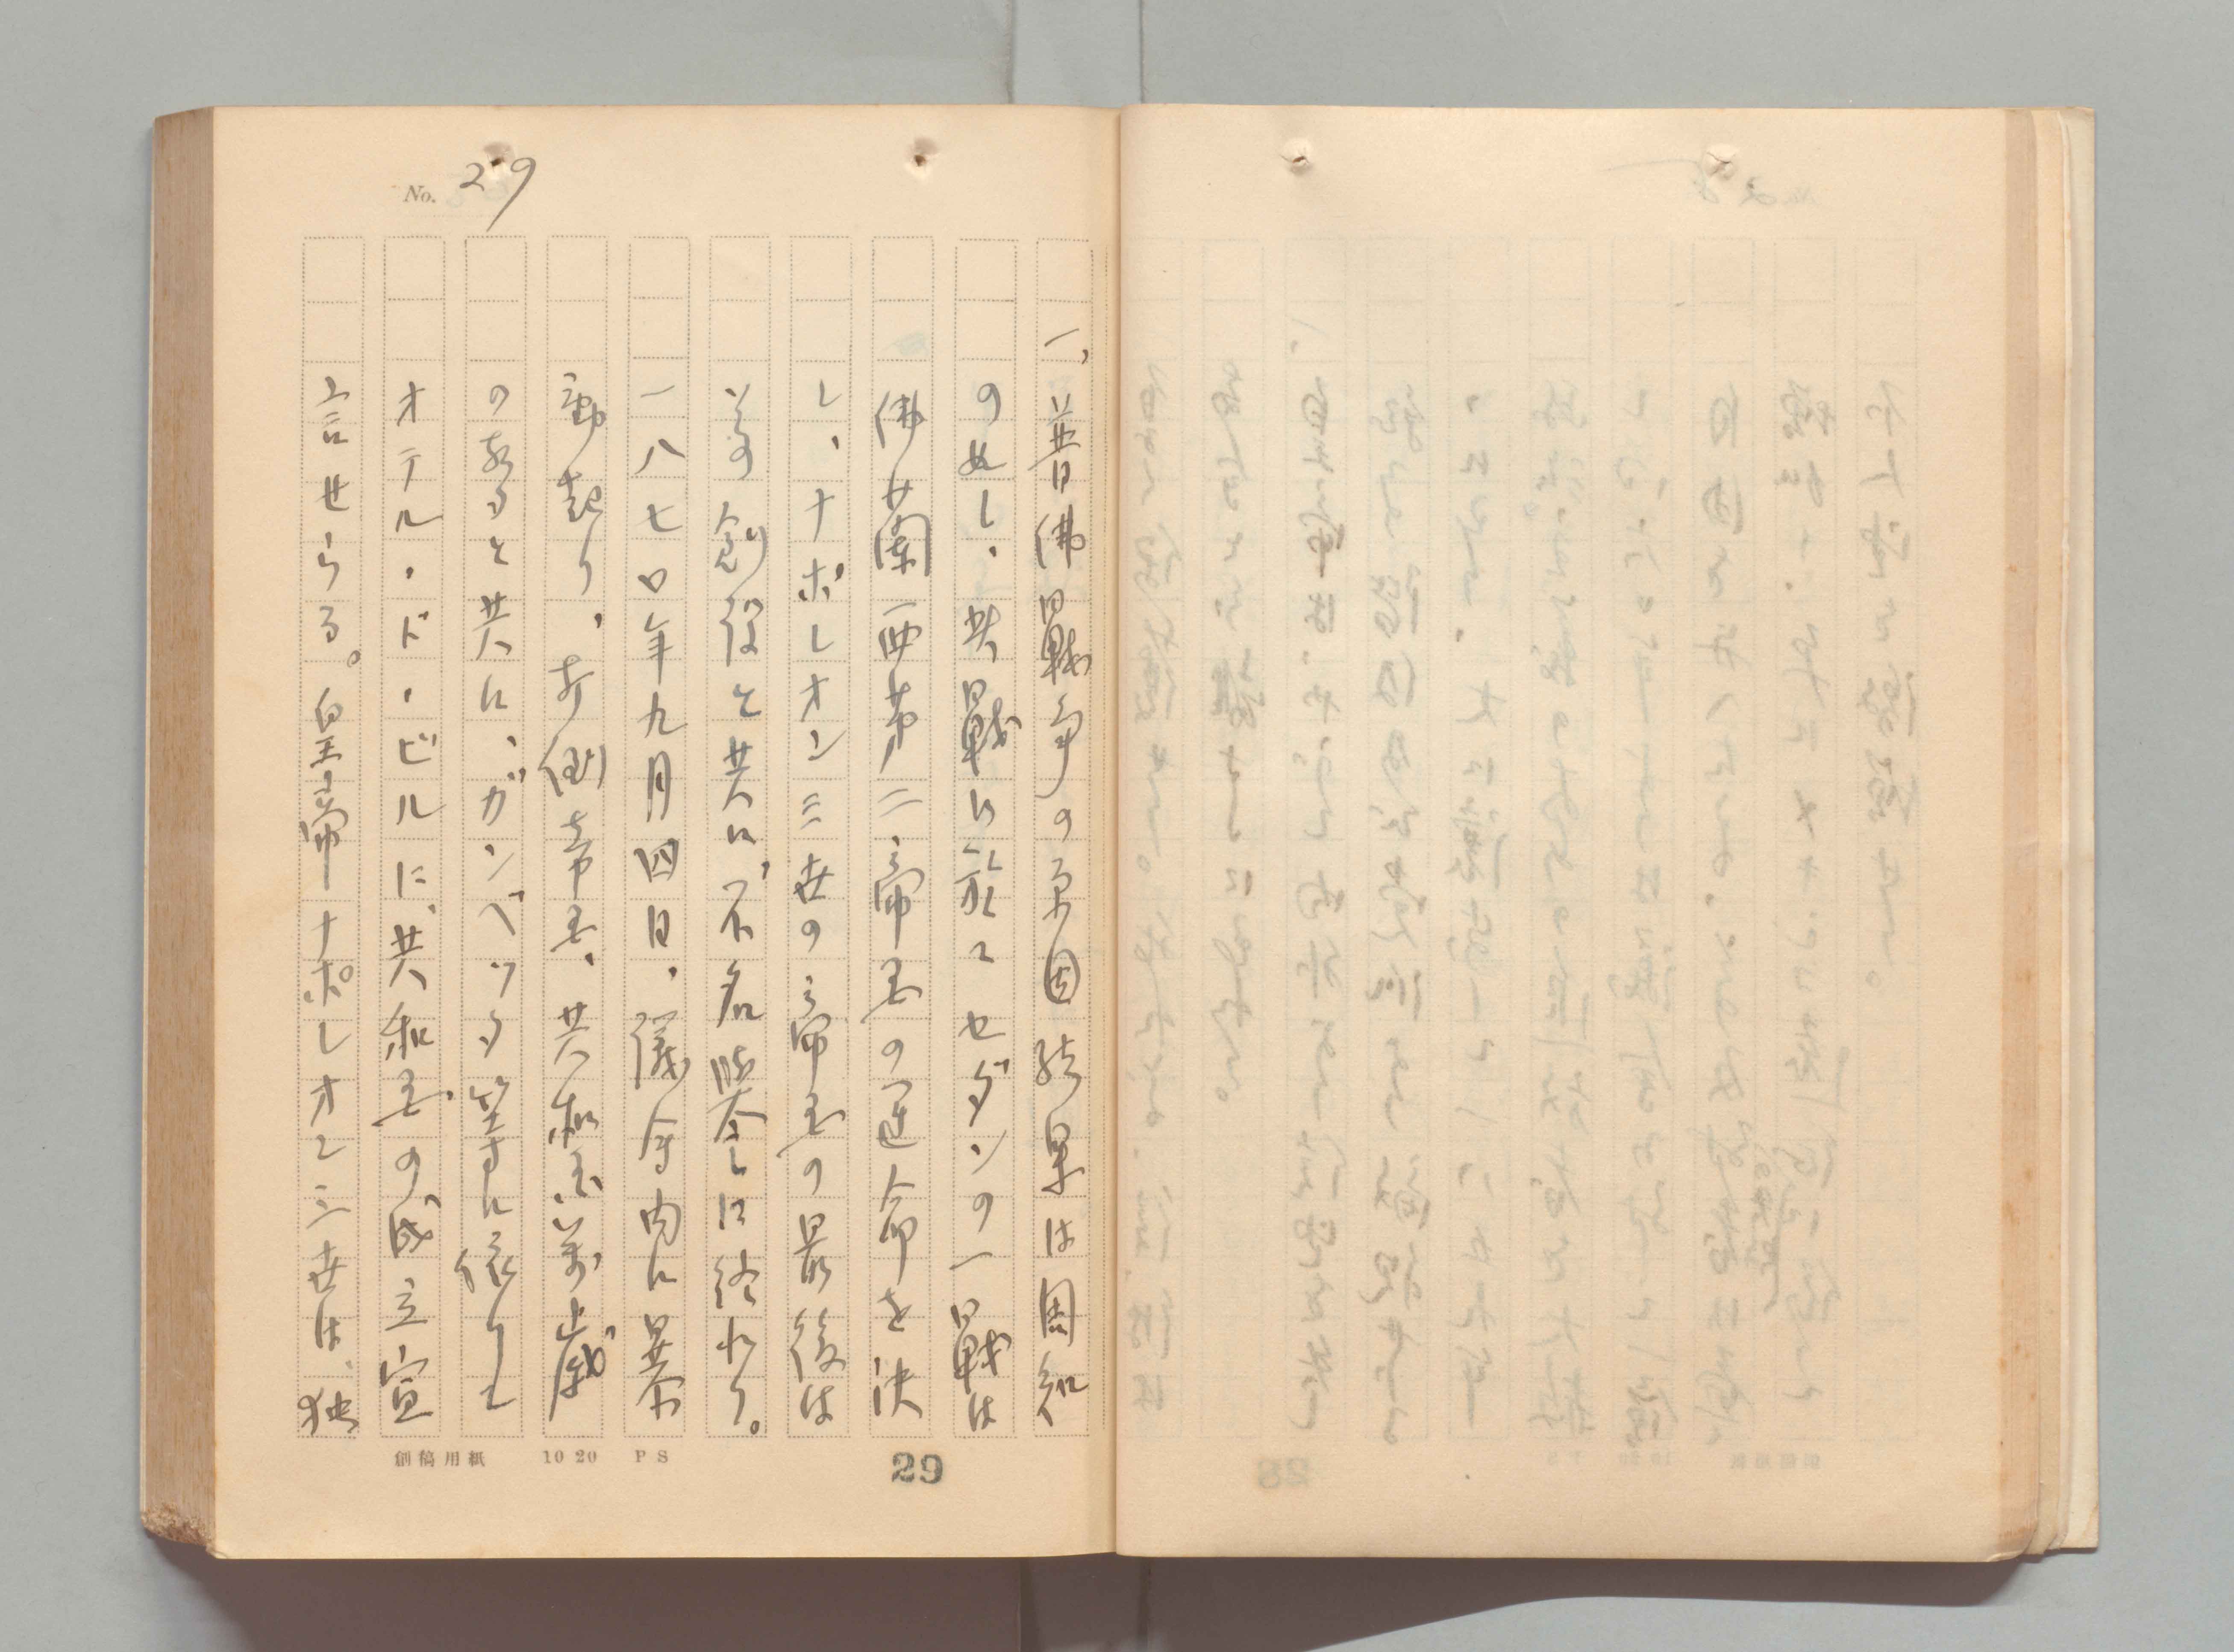 No. 29
一、普佛戰爭の原因結果は周知
のぬし、普戰に於てセダンの一戰は
佛蘭西第二帝国の運命を決
し、ナポレオン三世の帝国の最後は
その創設と共に、不名誉に終れり。
一八七〇年九月四日、議会内に暴
動起り、打倒帝国、共和国万歳
の声と共に、ガンベツタ等に依りて
オテル・ド・ビルに、共和国の成立宣
言せらる。皇帝ナポレオン三世は、独
創稿用紙 10 20 P S
29